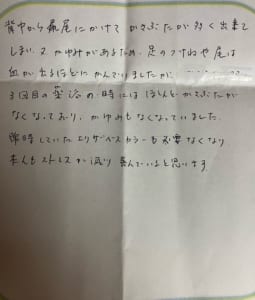 背中から尻尾にかけて かさぶたが多く出来て
しまい、又 かゆみがあるため、足のつけねや尾は
血が出るほどに かんでいましたが、
3回目の薬浴の時には ほとんど かさぶたが
なくなっており、かゆみもなくなっていました。
常時していた エリザベスカラーも必要なくなり
本人もストレスが減り 喜んでいると思います